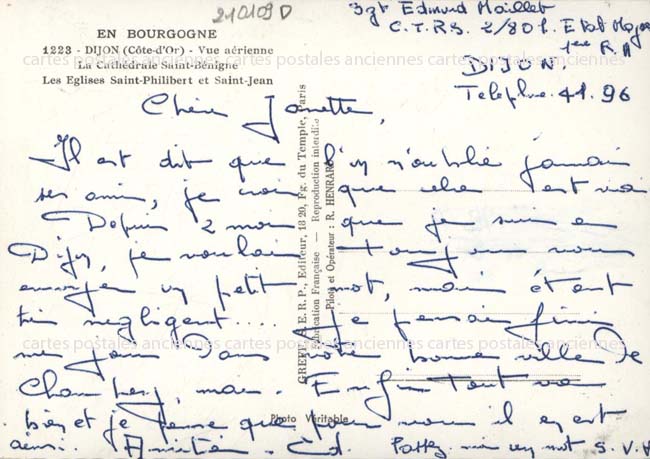 210109D
EN BOURGOGNE
1223 - DIJON (Côte-d'Or) - Vue aérienne
La Cathédrale Saint-Bénigne
Les Eglises Saint-Philibert et Saint-Jean
Sgt Edmund Maillet
C.T.R.S. 2/801. Etat Major
1ere R.A
DIJON.
Telephne. 41.96
cartes postales anciennes cartes postales anciennes cartes postales anciennes
Chère Janette,
Il est dit que l'on n'oublie jamais
ses amis, je crois que cela est vrai
Depuis 2 mois que je suis a
Dijon, je voulais toujours vous
envoyer un petit mot, mais étant
très negligent.... Je pensais finir
mes jours dans notre bonne ville de
Chambery, mais. Enfin tout va
bien et je pense que pour vous il en est
ainsi. Amitiés. Ed. Passez moi un mot S.V.
GREFF, S.E.R.P., Editeur, 18-20, Fg. du Temple, Paris
Fabrication Française — Reproduction interdite
Pilote et Opérateur : R. HENRARD
cartes postales anciennes cartes postales anciennes cartes postales anciennes
Photo Véritable